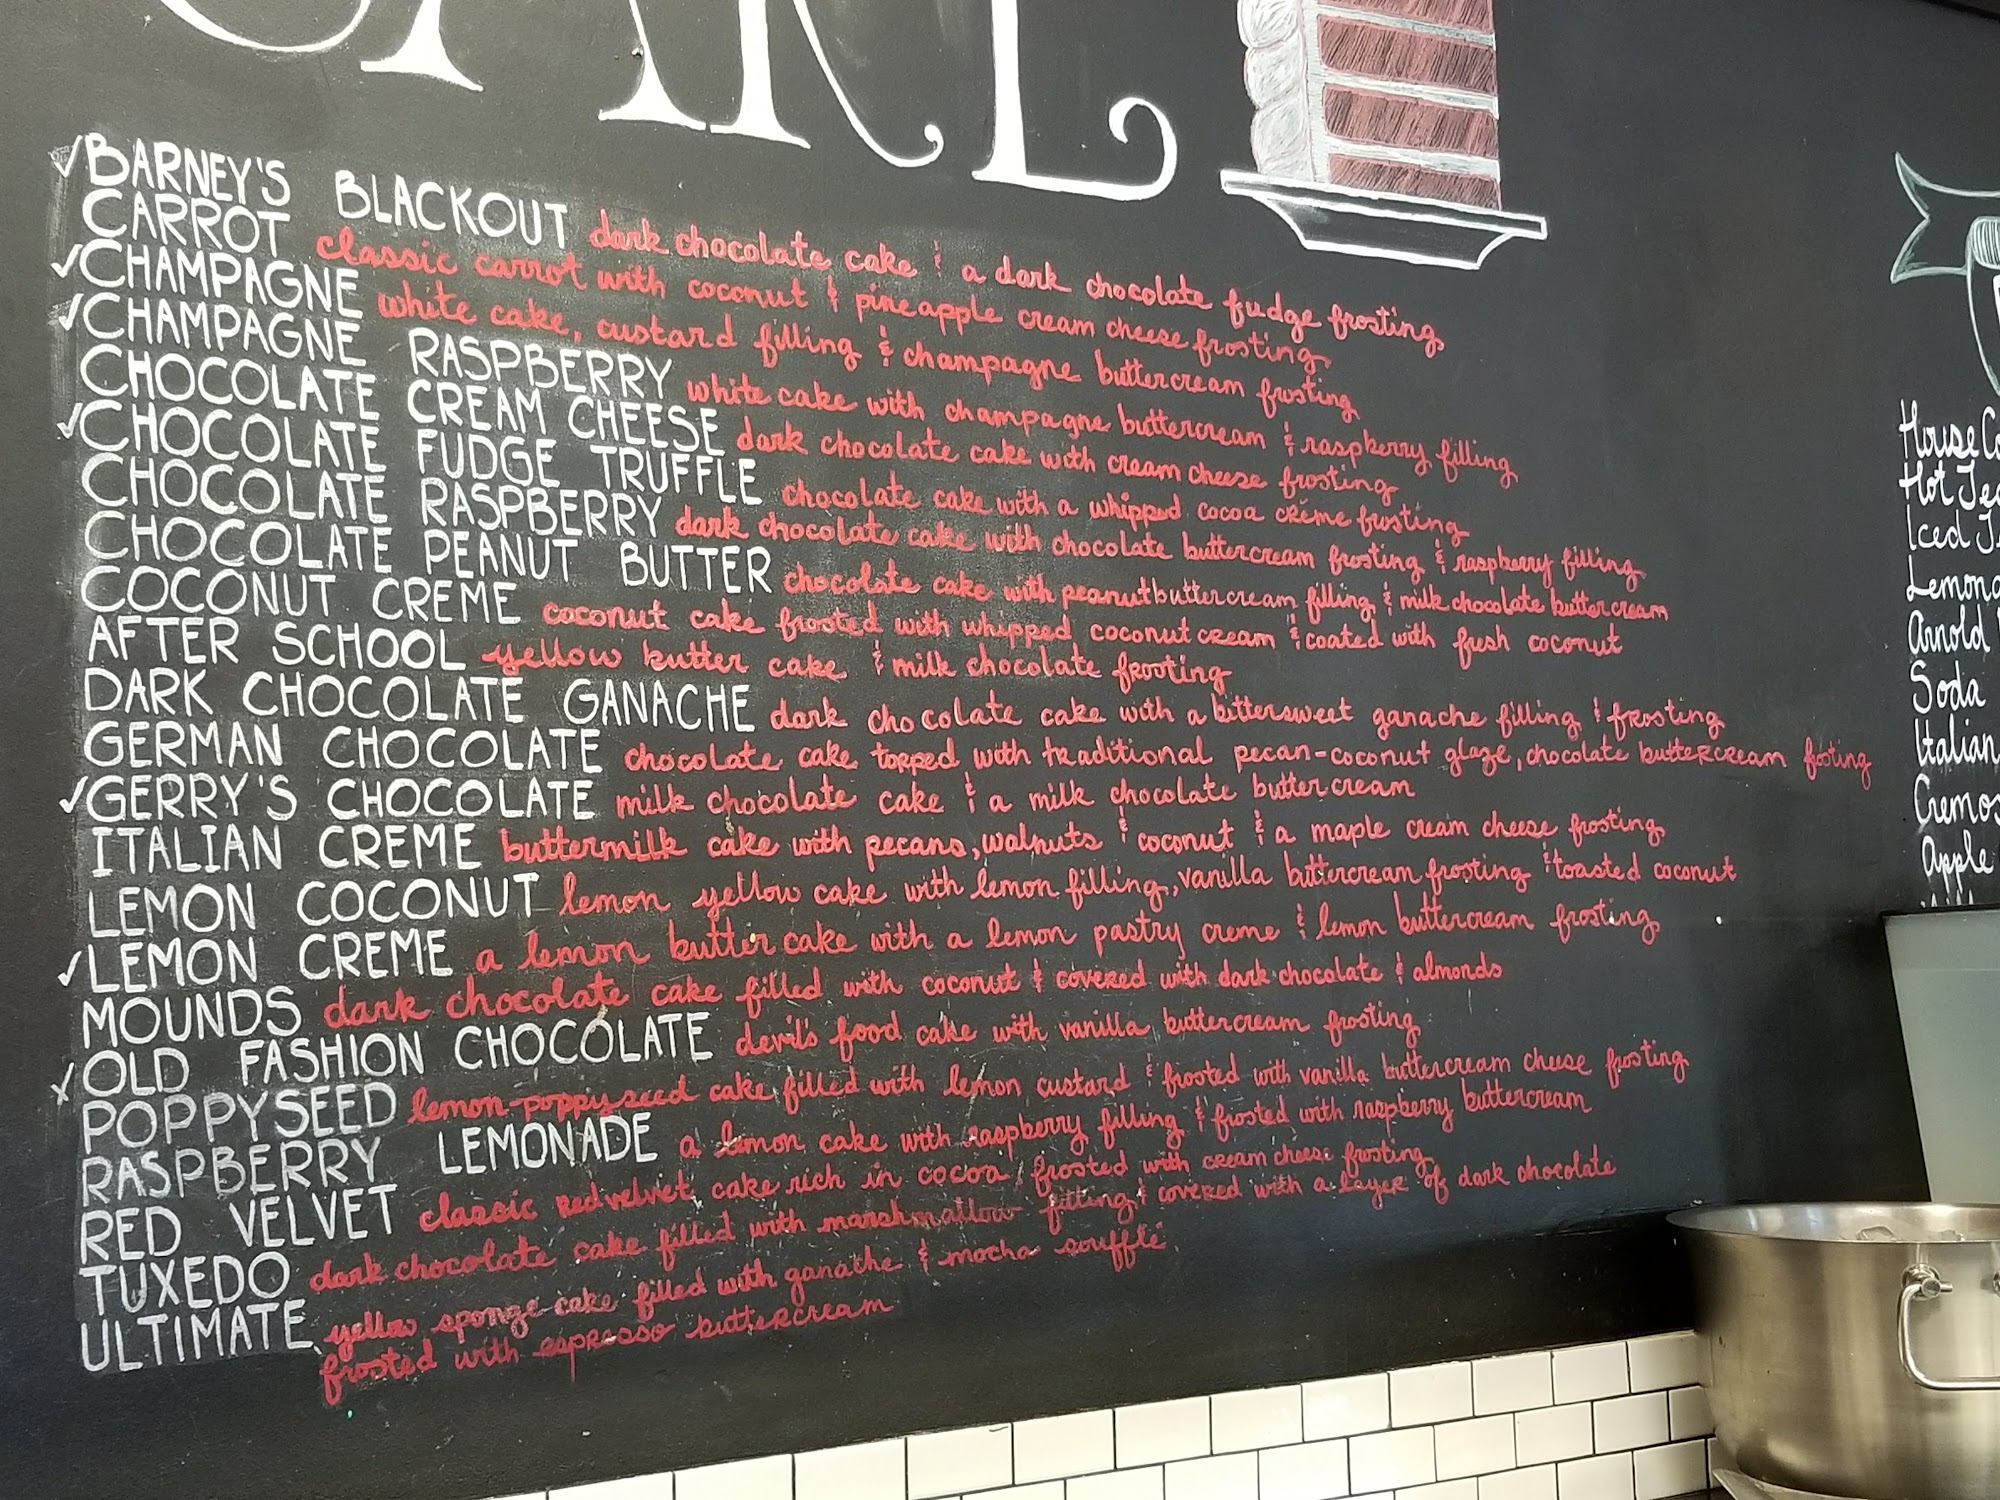 CAKE
✓BARNEY'S BLACKOUT dark chocolate cake & a dark chocolate fudge frosting
CARROT classic carrot with coconut & pineapple cream cheese frosting
✓CHAMPAGNE white cake, custard filling & champagne buttercream frosting
✓CHAMPAGNE RASPBERRY white cake with champagne buttercream & raspberry filling
CHOCOLATE CREAM CHEESE dark chocolate cake with cream cheese frosting
✓CHOCOLATE FUDGE TRUFFLE chocolate cake with a whipped cocoa créme frosting
CHOCOLATE RASPBERRY dark chocolate cake with chocolate buttercream frosting & raspberry filling
CHOCOLATE PEANUT BUTTER chocolate cake with peanutbuttercream filling & milk chocolate buttercream
COCONUT CREME coconut cake frosted with whipped coconut cream & coated with fresh coconut
AFTER SCHOOL yellow butter cake & milk chocolate frosting
DARK CHOCOLATE GANACHE dark chocolate cake with a bittersweet ganache filling & frosting
GERMAN CHOCOLATE chocolate cake topped with traditional pecan-coconut glaze, chocolate buttercream frosting
✓GERRY'S CHOCOLATE milk chocolate cake & a milk chocolate buttercream
ITALIAN CREME buttermilk cake with pecans, walnuts & coconut & a maple cream cheese frosting
LEMON COCONUT lemon yellow cake with lemon filling, vanilla buttercream frosting & toasted coconut
✓LEMON CREME a lemon butter cake with a lemon pastry creme & lemon buttercream frosting
MOUNDS dark chocolate cake filled with coconut & covered with dark chocolate & almonds
✓OLD FASHION CHOCOLATE devil's food cake with vanilla buttercream frosting
POPPYSEED lemon-poppyseed cake filled with lemon custard & frosted with vanilla buttercream cheese frosting
RASPBERRY LEMONADE a lemon cake with raspberry filling & frosted with raspberry buttercream
RED VELVET classic red velvet cake rich in cocoa, frosted with cream cheese frosting
TUXEDO dark chocolate cake filled with marshmallow filling & covered with a layer of dark chocolate
ULTIMATE yellow sponge cake filled with ganache & mocha soufflé
frosted with espresso buttercream
House
Hot Tea
Iced
Arnold
Soda
Italian
Apple